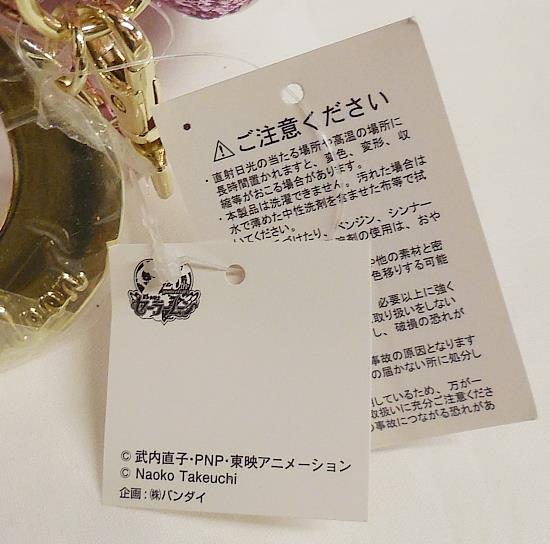 ご注意ください
・直射日光の当たる場所や高温の場所に
長時間置かれますと、変色、変形、収
縮等がおこる場合があります。
・本製品は洗濯できません。汚れた場合は
水で薄めた中性洗剤を含ませた布等で拭
いてください。
ベンジン、シンナー
溶剤の使用は、おや
や他の素材と密
色移りする可能
必要以上に強く
取り扱いをしない
し、破損の恐れが
事故の原因となります
の届かない所に処分し
しているため、万が一
取扱いに充分ご注意くださ
事故につながる恐れがあ
セーラームーン
© 武内直子・PNP・東映アニメーション
© Naoko Takeuchi
企画：㈱バンダイ